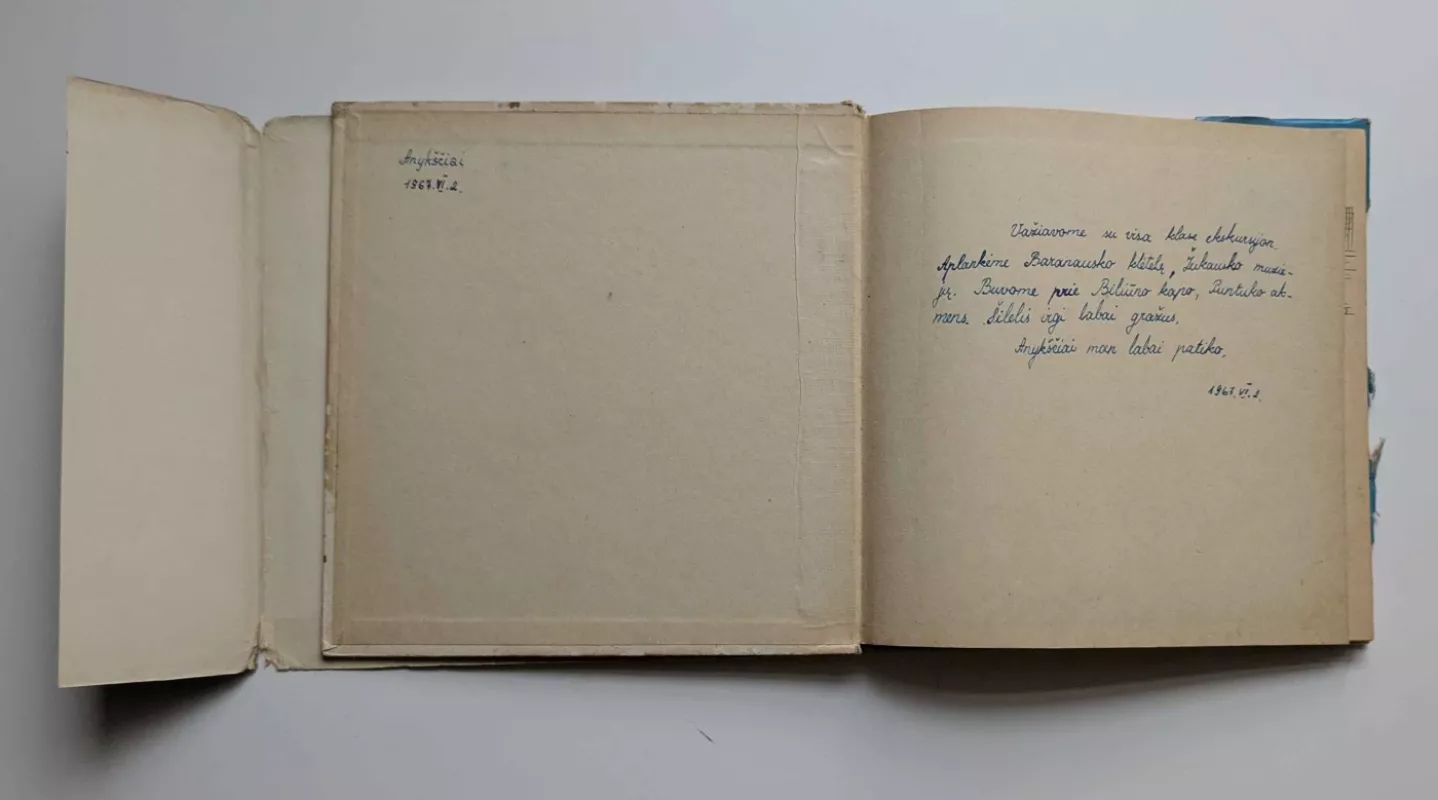 Anykščiai
1967.VI.2.
Važiavome su visa klase ekskursijon.
Aplankėme Baranausko klėtelę, Žukausko muzie-
jų. Buvome prie Biliūno kapo, Puntuko ak-
mens. Šilelis irgi labai gražus.
Anykščiai man labai patiko.
1967.VI.2.